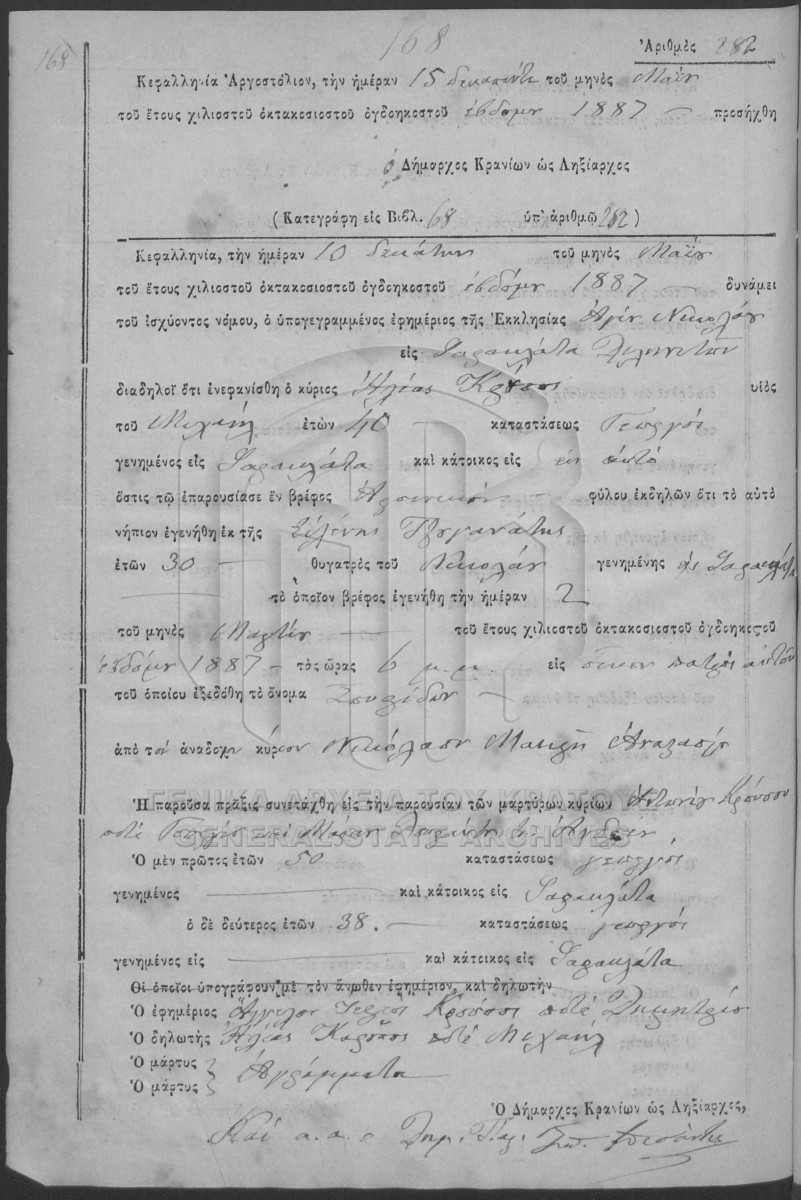 168
168
Ἀριθμὸς 282
Κεφαλληνία Ἀργοστόλιον, τὴν ἡμέραν 15 δεκαπέντε τοῦ μηνὸς Μαΐου
τοῦ ἔτους χιλιοστοῦ ὀκτακοσιοστοῦ ὀγδοηκοστοῦ ἑβδόμου 1887 — προσήχθη
ὁ Δήμαρχος Κρανίων ὡς Ληξίαρχος
(Κατεγράφη εἰς Βιβλ. 68 ὑπ' ἀριθμῷ 282)
Κεφαλληνία, τὴν ἡμέραν 10 δεκάτην τοῦ μηνὸς Μαΐου
τοῦ ἔτους χιλιοστοῦ ὀκτακοσιοστοῦ ὀγδοηκοστοῦ ἑβδόμου 1887 — δυνάμει
τοῦ ἰσχύοντος νόμου, ὁ ὑπογεγραμμένος ἐφημέριος τῆς Ἐκκλησίας Ἁγίου Νικολάου
εἰς Φαρακλάτα
διαδηλοῖ ὅτι ἐνεφανίσθη ὁ κύριος Ἠλίας Κροῦσος υἱὸς
τοῦ Μιχαήλ ἐτῶν 40 — καταστάσεως Γεωργός
γενημένος εἰς Φαρακλάτα καὶ κάτοικος εἰς αὐτό
ὅστις τῷ ἐπαρουσίασε ἓν βρέφος Ἀρσενικοῦ — φύλου ἐκδηλῶν ὅτι τὸ αὐτὸ
νήπιον ἐγενήθη ἐκ τῆς
ἐτῶν 30 — θυγατρὸς τοῦ Νικολάου γενημένης εἰς Φαρακλάτα
τὸ ὁποῖον βρέφος ἐγενήθη τὴν ἡμέραν 2
τοῦ μηνὸς Μαρτίου — τοῦ ἔτους χιλιοστοῦ ὀκτακοσιοστοῦ ὀγδοηκοστοῦ
ἑβδόμου 1887 — τὸς ὥρας 6 μ.μ. εἰς οἶκον πατρός αὐτοῦ
τοῦ ὁποίου ἐξεδόθη τὸ ὄνομα Σπυρίδων —
ἀπὸ τοῦ ἀναδόχου κύριον Νικόλαον
Ἡ παροῦσα πρᾶξις συνετάχθη εἰς τὴν παρουσίαν τῶν μαρτύρων κυρίων Ἀντωνίου Κρούσου
ποτὲ
ΓΕΝΙΚΑ ΑΡΧΕΙΑ ΤΟΥ ΚΡΑΤΟΥΣ
GENERAL STATE ARCHIVES
Ὁ μὲν πρῶτος ἐτῶν 50 καταστάσεως γεωργός
γενημένος — καὶ κάτοικος εἰς Φαρακλάτα
ὁ δὲ δεύτερος ἐτῶν 38. — καταστάσεως γεωργός
γενημένος εἰς — καὶ κάτοικος εἰς Φαρακλάτα
Οἱ ὁποῖοι ὑπογράφουν μὲ τὸν ἄνωθεν ἐφημέριον, καὶ δηλωτὴν
Ὁ ἐφημέριος Ἄγγελος Ἱερεὺς Κροῦσος ποτὲ Δημητρίου
Ὁ δηλωτὴς Ἠλίας Κροῦσος ποτὲ Μιχαήλ
Ὁ μάρτυς
Ὁ μάρτυς } Ἀγράμματοι
Ὁ Δήμαρχος Κρανίων ὡς Ληξίαρχος,